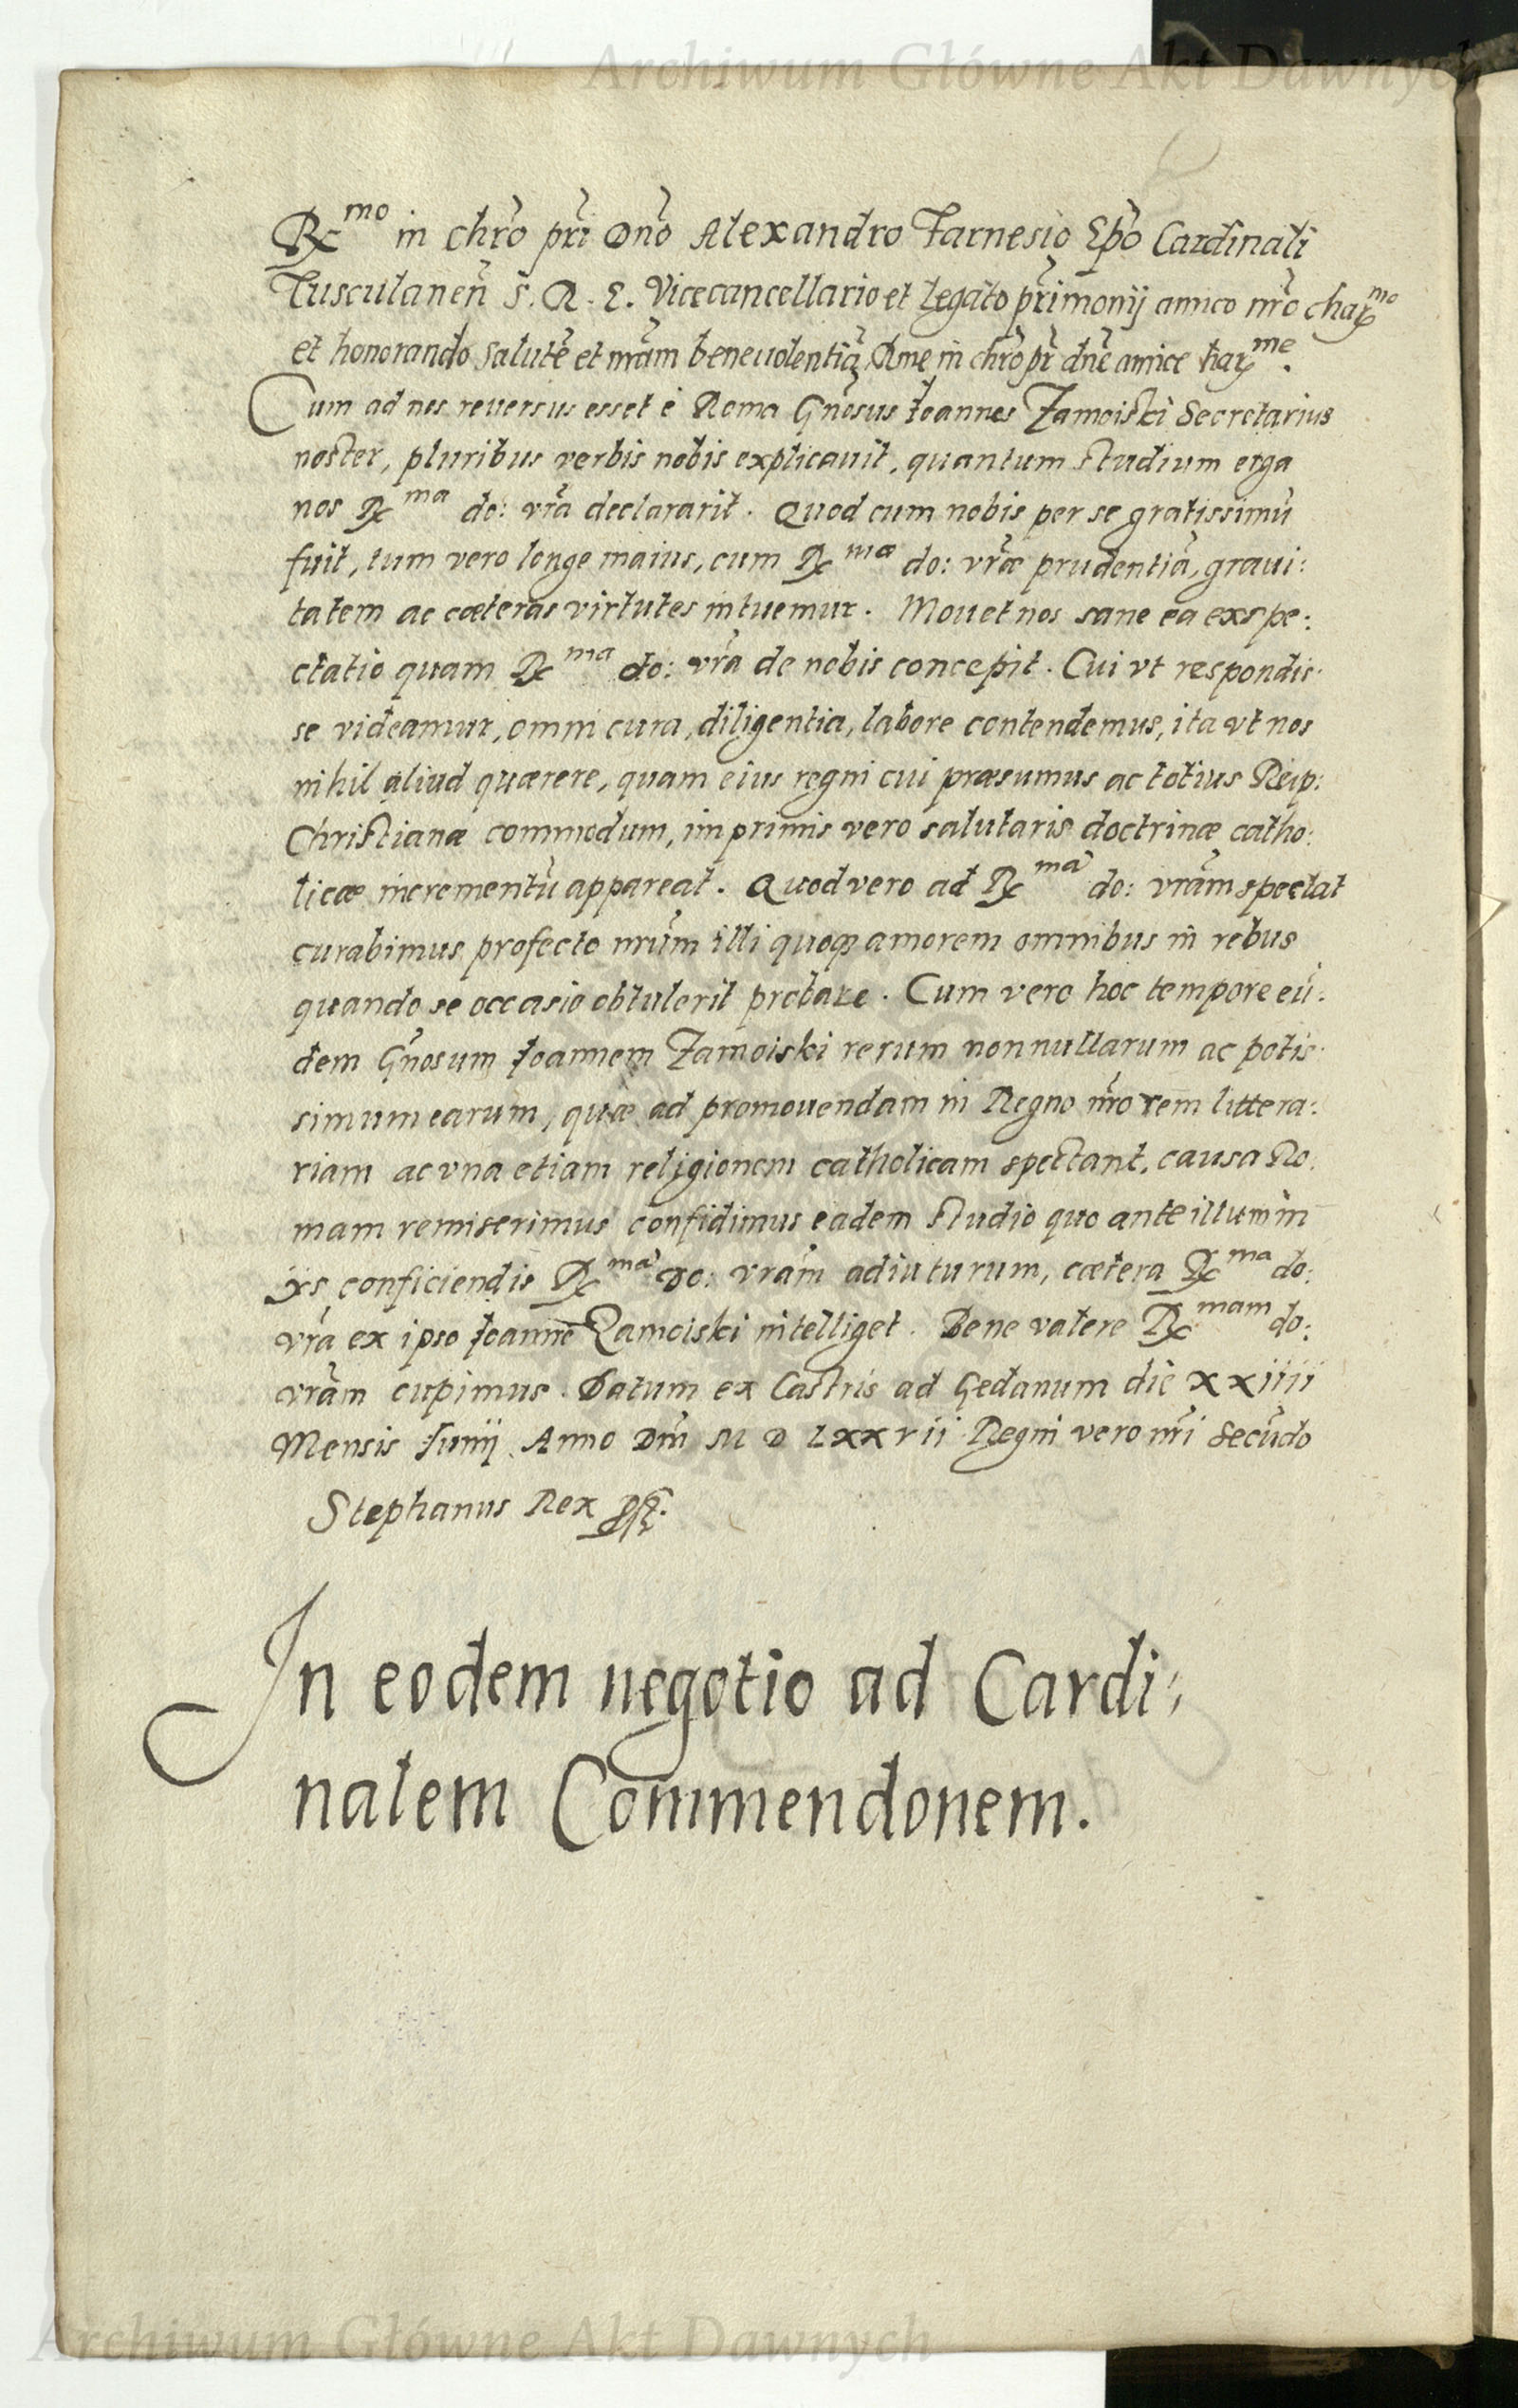 Archiwum Główne Akt Dawnych
Rx^mo in chr̃o pr̃i Dn̄o Alexandro Farnesio Ep̃o Cardinali
Tusculanen̄ S. R. E. Vicecancellario et Legato pr̃imonij amico nr̃o char^mo
et honorando salutē et nr̃am beneuolentiā. Rme in chr̃o pr̃ dn̄e amice har^me.
Cum ad nos reuersus esset è Roma Gn̄osus Ioannes Zamoiski Secretarius
noster, pluribus verbis nobis explicauit, quantum studium erga
nos Rx^ma do: vr̃a declararit. Quod cum nobis per se gratissimū
fuit, tum vero longe maius, cum Rx^mæ do: vr̃æ prudentiā, graui:
tatem ac cæteras virtutes intuemur. Mouet nos sane ea exspe:
ctatio quam Rx^ma do: vr̃a de nobis concepit. Cui vt respondis:
se videamur, omni cura, diligentia, labore contendemus, ita vt nos
nihil aliud quærere, quam eius regni cui præsumus ac totius Reip:
Christianæ commodum, imprimis vero salutaris doctrinæ catho:
licæ incrementū appareat. Quod vero ad Rx^mā do: vr̃am spectat
curabimus profecto nr̃um illi quoqꝫ amorem omnibus in rebus
quando se occasio obtulerit probare. Cum vero hoc tempore eū:
dem Gn̄osum Ioannem Zamoiski rerum nonnullarum ac potis:
simum earum, quæ ad promouendam in Regno nr̃o rem littera:
riam ac vna etiam religionem catholicam spectant, causa Ro:
mam remiserimus confidimus eadem studio quo ante illum in
ijs conficiendis Rx^mā do: vr̃am adiuturum, cætera Rx^ma do:
vr̃a ex ipso Ioanne Zamoiski intelliget. Bene valere Rx^mam do:
vr̃am cupimus. Datum ex Castris ad Gedanum die XXiiii
Mensis Iunij Anno Dn̄i M D LXXvii Regni vero nr̃i Secūdo
Stephanus Rex
In eodem negotio ad Cardi:
nalem Commendonem.
Archiwum Główne Akt Dawnych